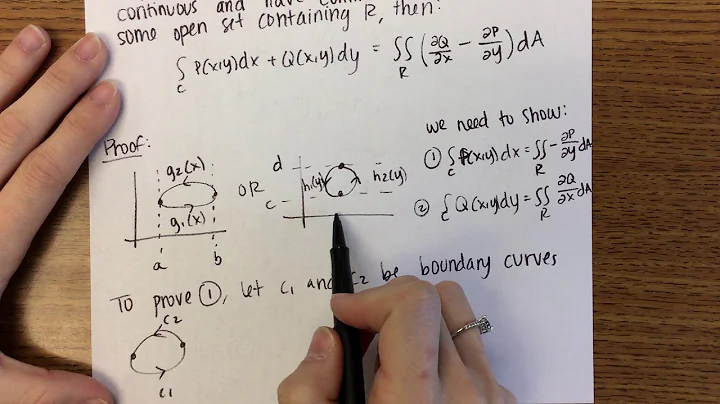 continuous and have
some open set containing R, then:
∫_C P(x,y)dx + Q(x,y)dy = ∬_R (∂Q/∂x − ∂P/∂y) dA
Proof:
g₂(x)
g₁(x)
a b
OR
d
c
h₁(y) h₂(y)
we need to show:
① ∫_C P(x,y)dx = ∬_R −∂P/∂y dA
② ∫_C Q(x,y)dy = ∬_R ∂Q/∂x dA
To prove ①, let C₁ and C₂ be boundary curves
C2
C1